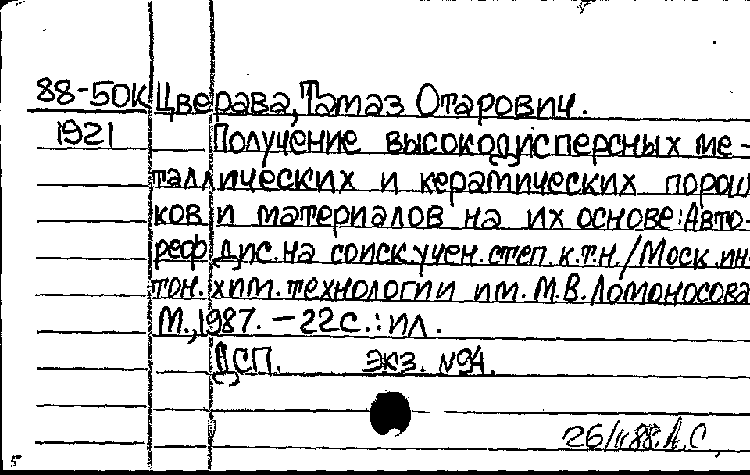 88-50К Цверава, Тамаз Отарович.
1921 Получение высокодисперсных ме-
таллических и керамических порош
ков и материалов на их основе: Авто-
реф. дис. на соиск. учен. степ. к.т.н. / Моск. ин-
тон. хим. технологии им. М.В. Ломоносова
М., 1987. – 22 с. : ил.
ДСП. экз. №94.
5